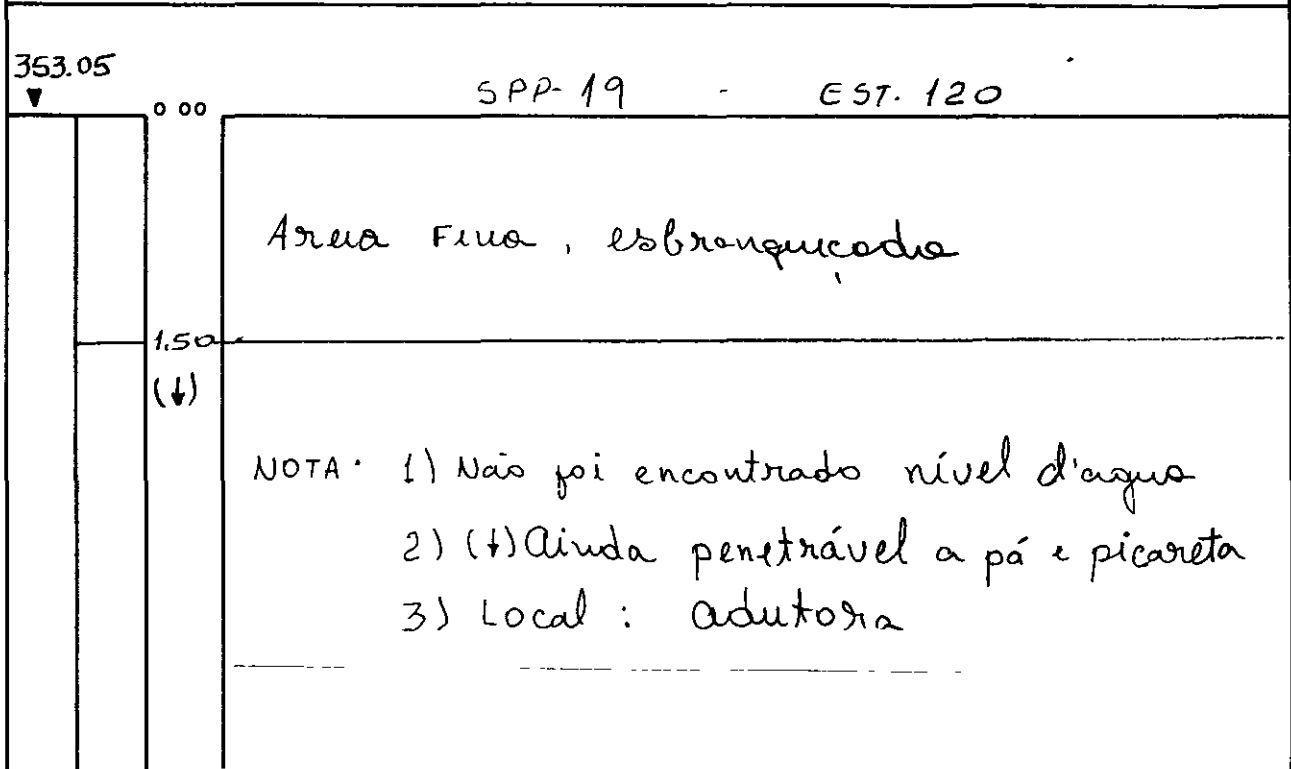 353.05
SPP-19 - EST. 120
0 00
Areia Fina, esbranquiçada
1,50
(↓)
NOTA· 1) Não foi encontrado nível d'agua
2) (↓) Ainda penetrável a pá e picareta
3) Local : adutora